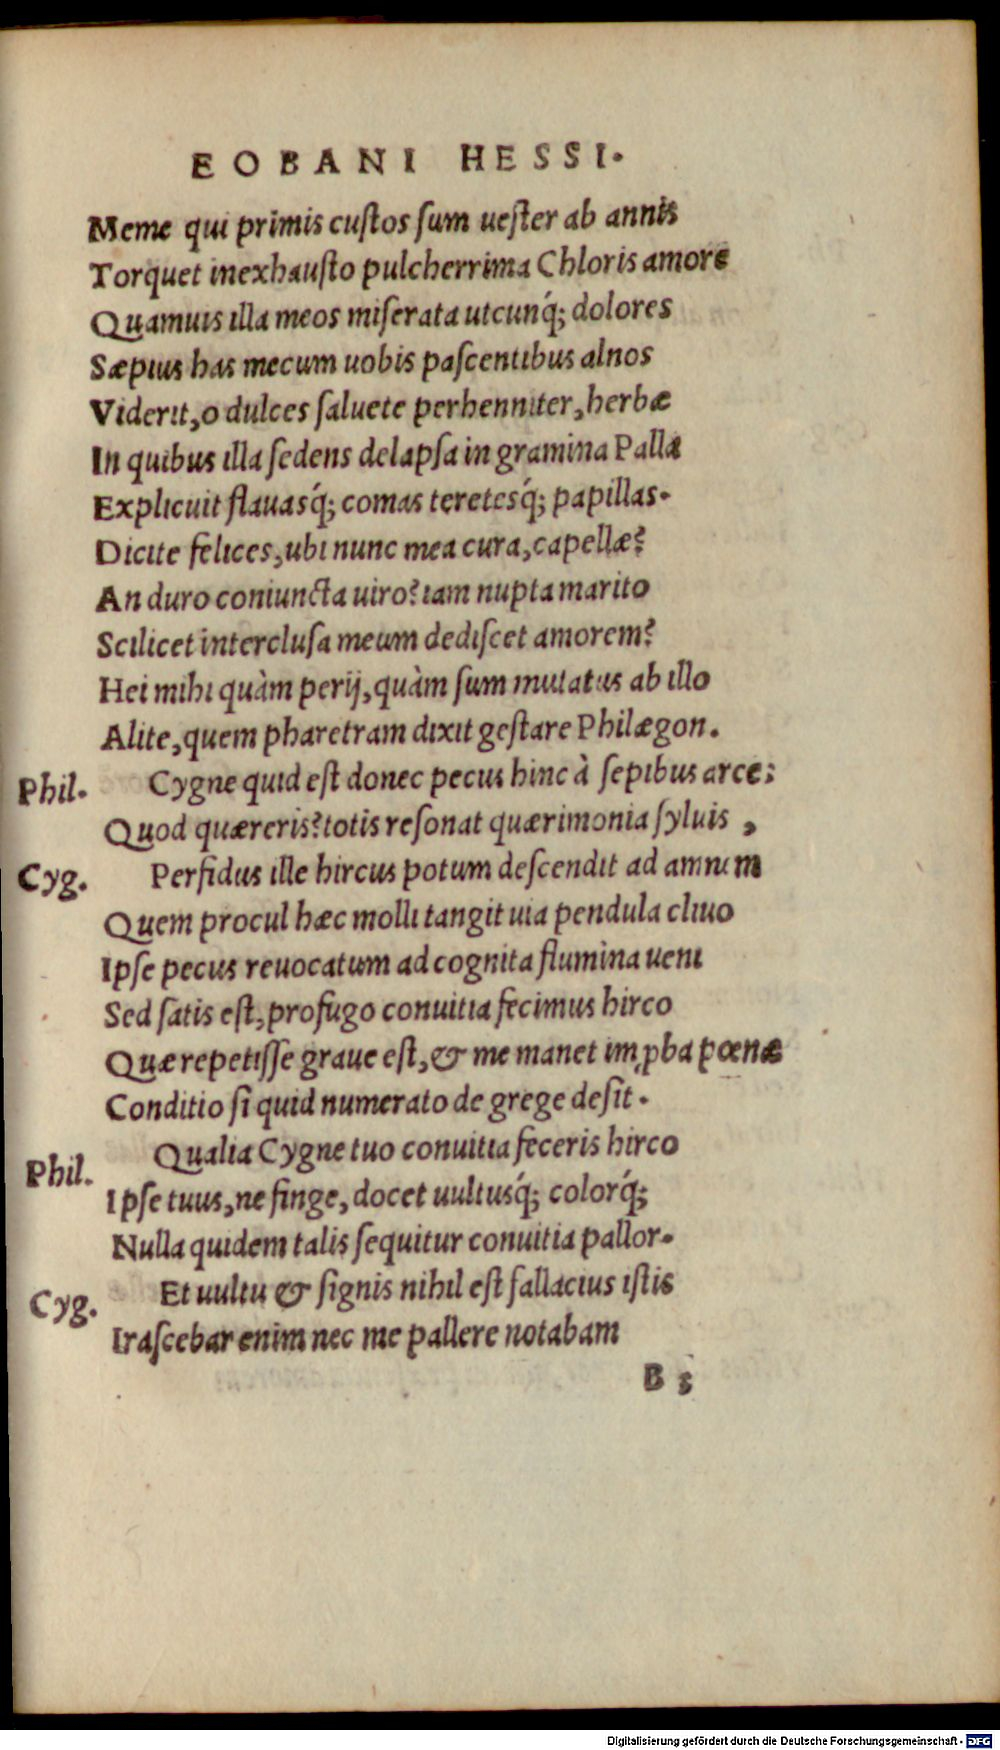 EOBANI HESSI.
Meme qui primis cuſtos ſum ueſter ab annis
Torquet inexhauſto pulcherrima Chloris amore
Quamuis illa meos miſerata utcunq́; dolores
Sæpius has mecum uobis paſcentibus alnos
Viderit, o dulces ſaluete perhenniter, herbæ
In quibus illa ſedens delapſa in gramina Palla
Explicuit flauasq́; comas teretesq́; papillas.
Dicite felices, ubi nunc mea cura, capellæ?
An duro coniuncta uiro? iam nupta marito
Scilicet intercluſa meum dediſcet amorem?
Hei mihi quàm perij, quàm ſum mutatus ab illo
Alite, quem pharetram dixit geſtare Philægon.
Phil. Cygne quid eſt donec pecus hinc à ſepibus arce:
Quod quæreris? totis reſonat quærimonia ſyluis ,
Cyg. Perfidus ille hircus potum deſcendit ad amnem
Quem procul hæc molli tangit uia pendula cliuo
Ipſe pecus reuocatum ad cognita flumina ueni
Sed ſatis eſt, profugo conuitia fecimus hirco
Quæ repetiſſe graue eſt, & me manet imꝓba pœnæ
Conditio ſi quid numerato de grege deſit.
Phil. Qualia Cygne tuo conuitia feceris hirco
Ipſe tuus, ne finge, docet uultusq́; colorq́;
Nulla quidem talis ſequitur conuitia pallor.
Cyg. Et uultu & ſignis nihil eſt fallacius iſtis
Iraſcebar enim nec me pallere notabam
B 5
Digitalisierung gefördert durch die Deutsche Forschungsgemeinschaft - DFG